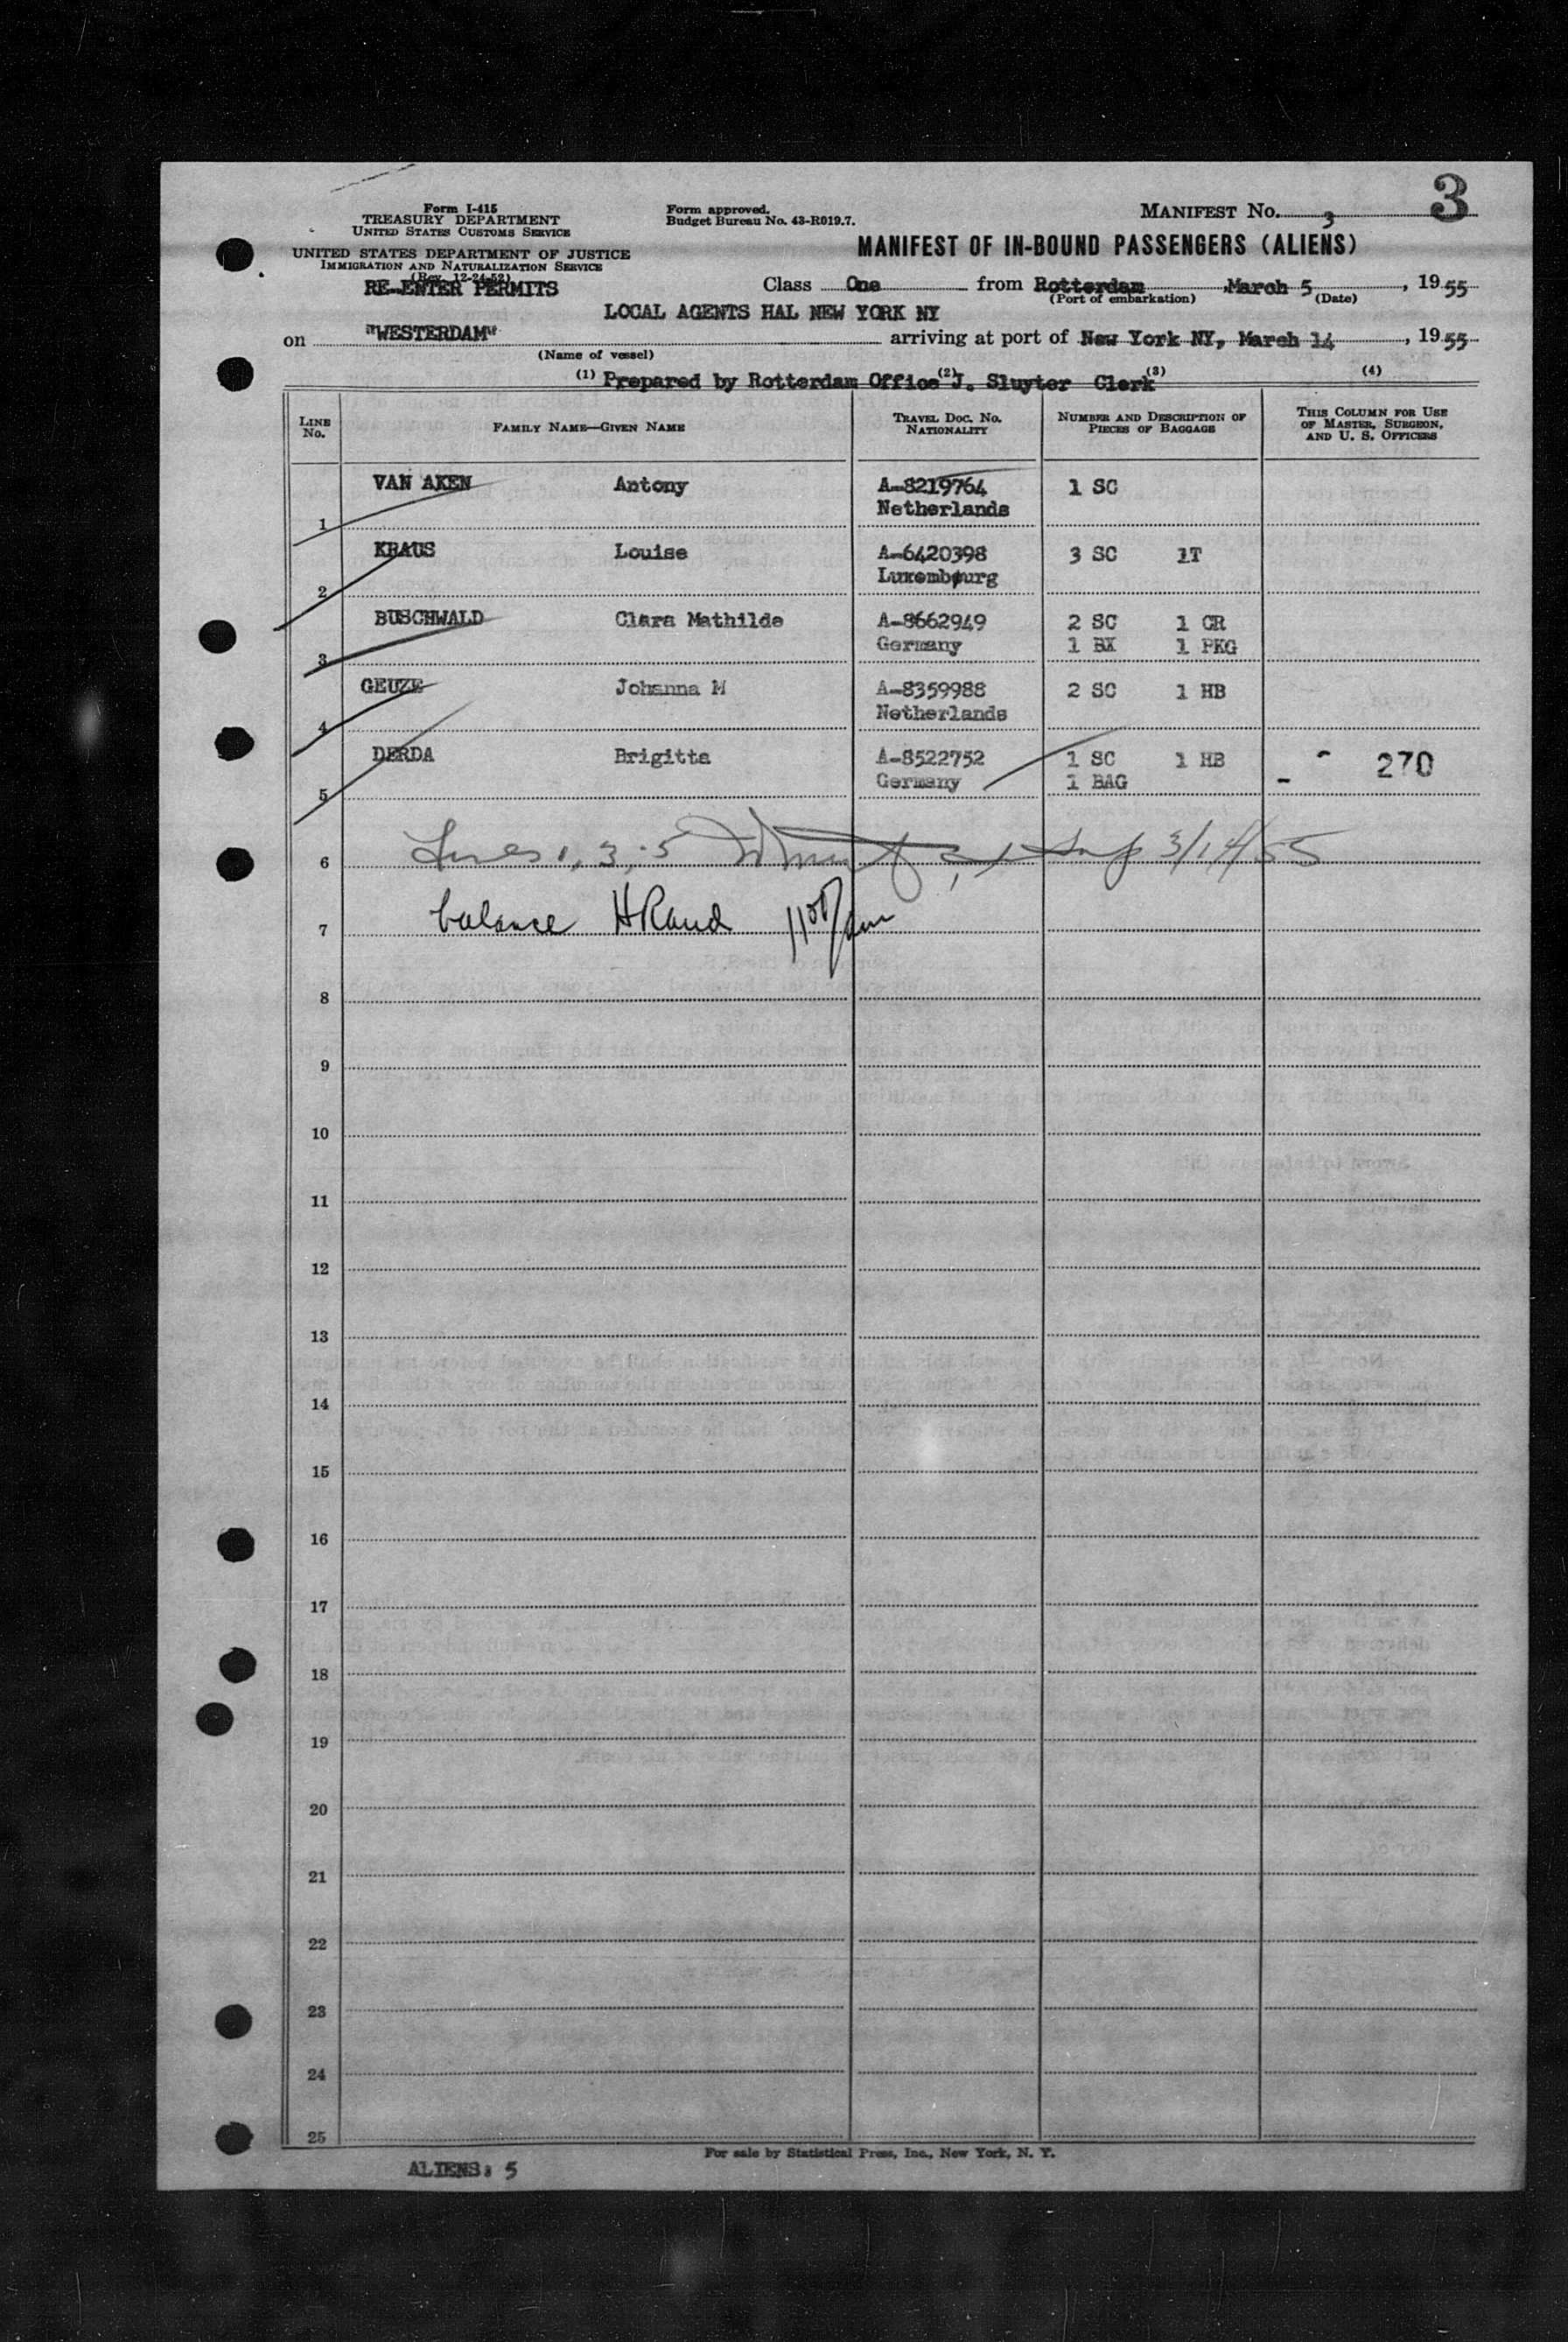 3
Form I-415
TREASURY DEPARTMENT
UNITED STATES CUSTOMS SERVICE
Form approved.
Budget Bureau No. 43-R019.7.
MANIFEST No. 3
UNITED STATES DEPARTMENT OF JUSTICE
IMMIGRATION AND NATURALIZATION SERVICE
(Rev. 12-24-52)
MANIFEST OF IN-BOUND PASSENGERS (ALIENS)
RE-ENTER PERMITS
Class One from Rotterdam, March 5, 1955
(Port of embarkation) (Date)
LOCAL AGENTS HAL NEW YORK NY
on "WESTERDAM" arriving at port of New York NY, March 14, 1955
(Name of vessel)
(1) Prepared by Rotterdam Office (2) J. Sluyter Clerk (3) (4)
LINE No. FAMILY NAME—GIVEN NAME TRAVEL DOC. No. NATIONALITY NUMBER AND DESCRIPTION OF PIECES OF BAGGAGE THIS COLUMN FOR USE OF MASTER, SURGEON, AND U. S. OFFICERS
VAN AKEN Antony A-8219764 1 SC
1 Netherlands
KRAUS Louise A-6420398 3 SC 1T
2 Luxembourg
BUSCHWALD Clara Mathilde A-8662949 2 SC 1 CR
3 Germany 1 BX 1 PKG
GEUZE Johanna M A-8359988 2 SC 1 HB
4 Netherlands
DERDA Brigitta A-8522752 1 SC 1 HB 270
5 Germany 1 BAG
6 Lines 1, 3, 5 3/14/55
7 balance HRand
8
9
10
11
12
13
14
15
16
17
18
19
20
21
22
23
24
25
For sale by Statistical Press, Inc., New York, N. Y.
ALIENS: 5